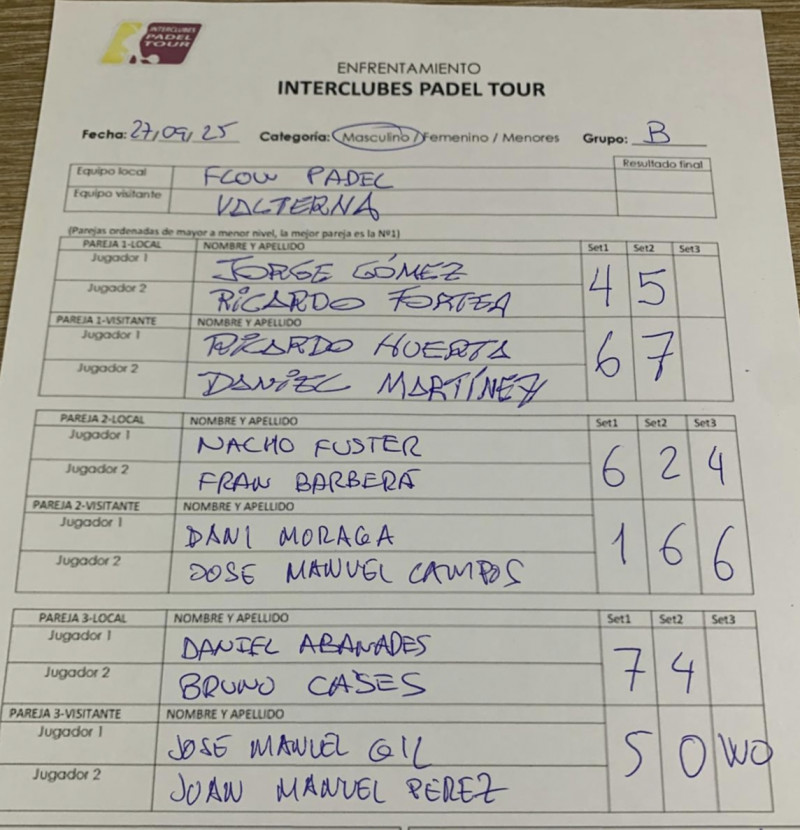 INTERCLUBES
PADEL
TOUR
ENFRENTAMIENTO
INTERCLUBES PADEL TOUR
Fecha: 27/09/25 Categoría: Masculino / Femenino / Menores Grupo: B
Resultado final
Equipo local FLOW PADEL
Equipo visitante VALTERNA
(Parejas ordenadas de mayor a menor nivel, la mejor pareja es la Nº1)
PAREJA 1-LOCAL NOMBRE Y APELLIDO Set1 Set2 Set3
Jugador 1 JORGE GÓMEZ
Jugador 2 RICARDO FORTEA
4 5
PAREJA 1-VISITANTE NOMBRE Y APELLIDO
Jugador 1 RICARDO HUERTA
Jugador 2 DANIEL MARTÍNEZ
6 7
PAREJA 2-LOCAL NOMBRE Y APELLIDO Set1 Set2 Set3
Jugador 1 NACHO FUSTER
Jugador 2 FRAN BARBERÁ
6 2 4
PAREJA 2-VISITANTE NOMBRE Y APELLIDO
Jugador 1 DANI MORAGA
Jugador 2 JOSE MANUEL CAMPOS
1 6 6
PAREJA 3-LOCAL NOMBRE Y APELLIDO Set1 Set2 Set3
Jugador 1 DANIEL ABANADES
Jugador 2 BRUNO CASES
7 4
PAREJA 3-VISITANTE NOMBRE Y APELLIDO
Jugador 1 JOSE MANUEL GIL
Jugador 2 JUAN MANUEL PEREZ
5 0 WO